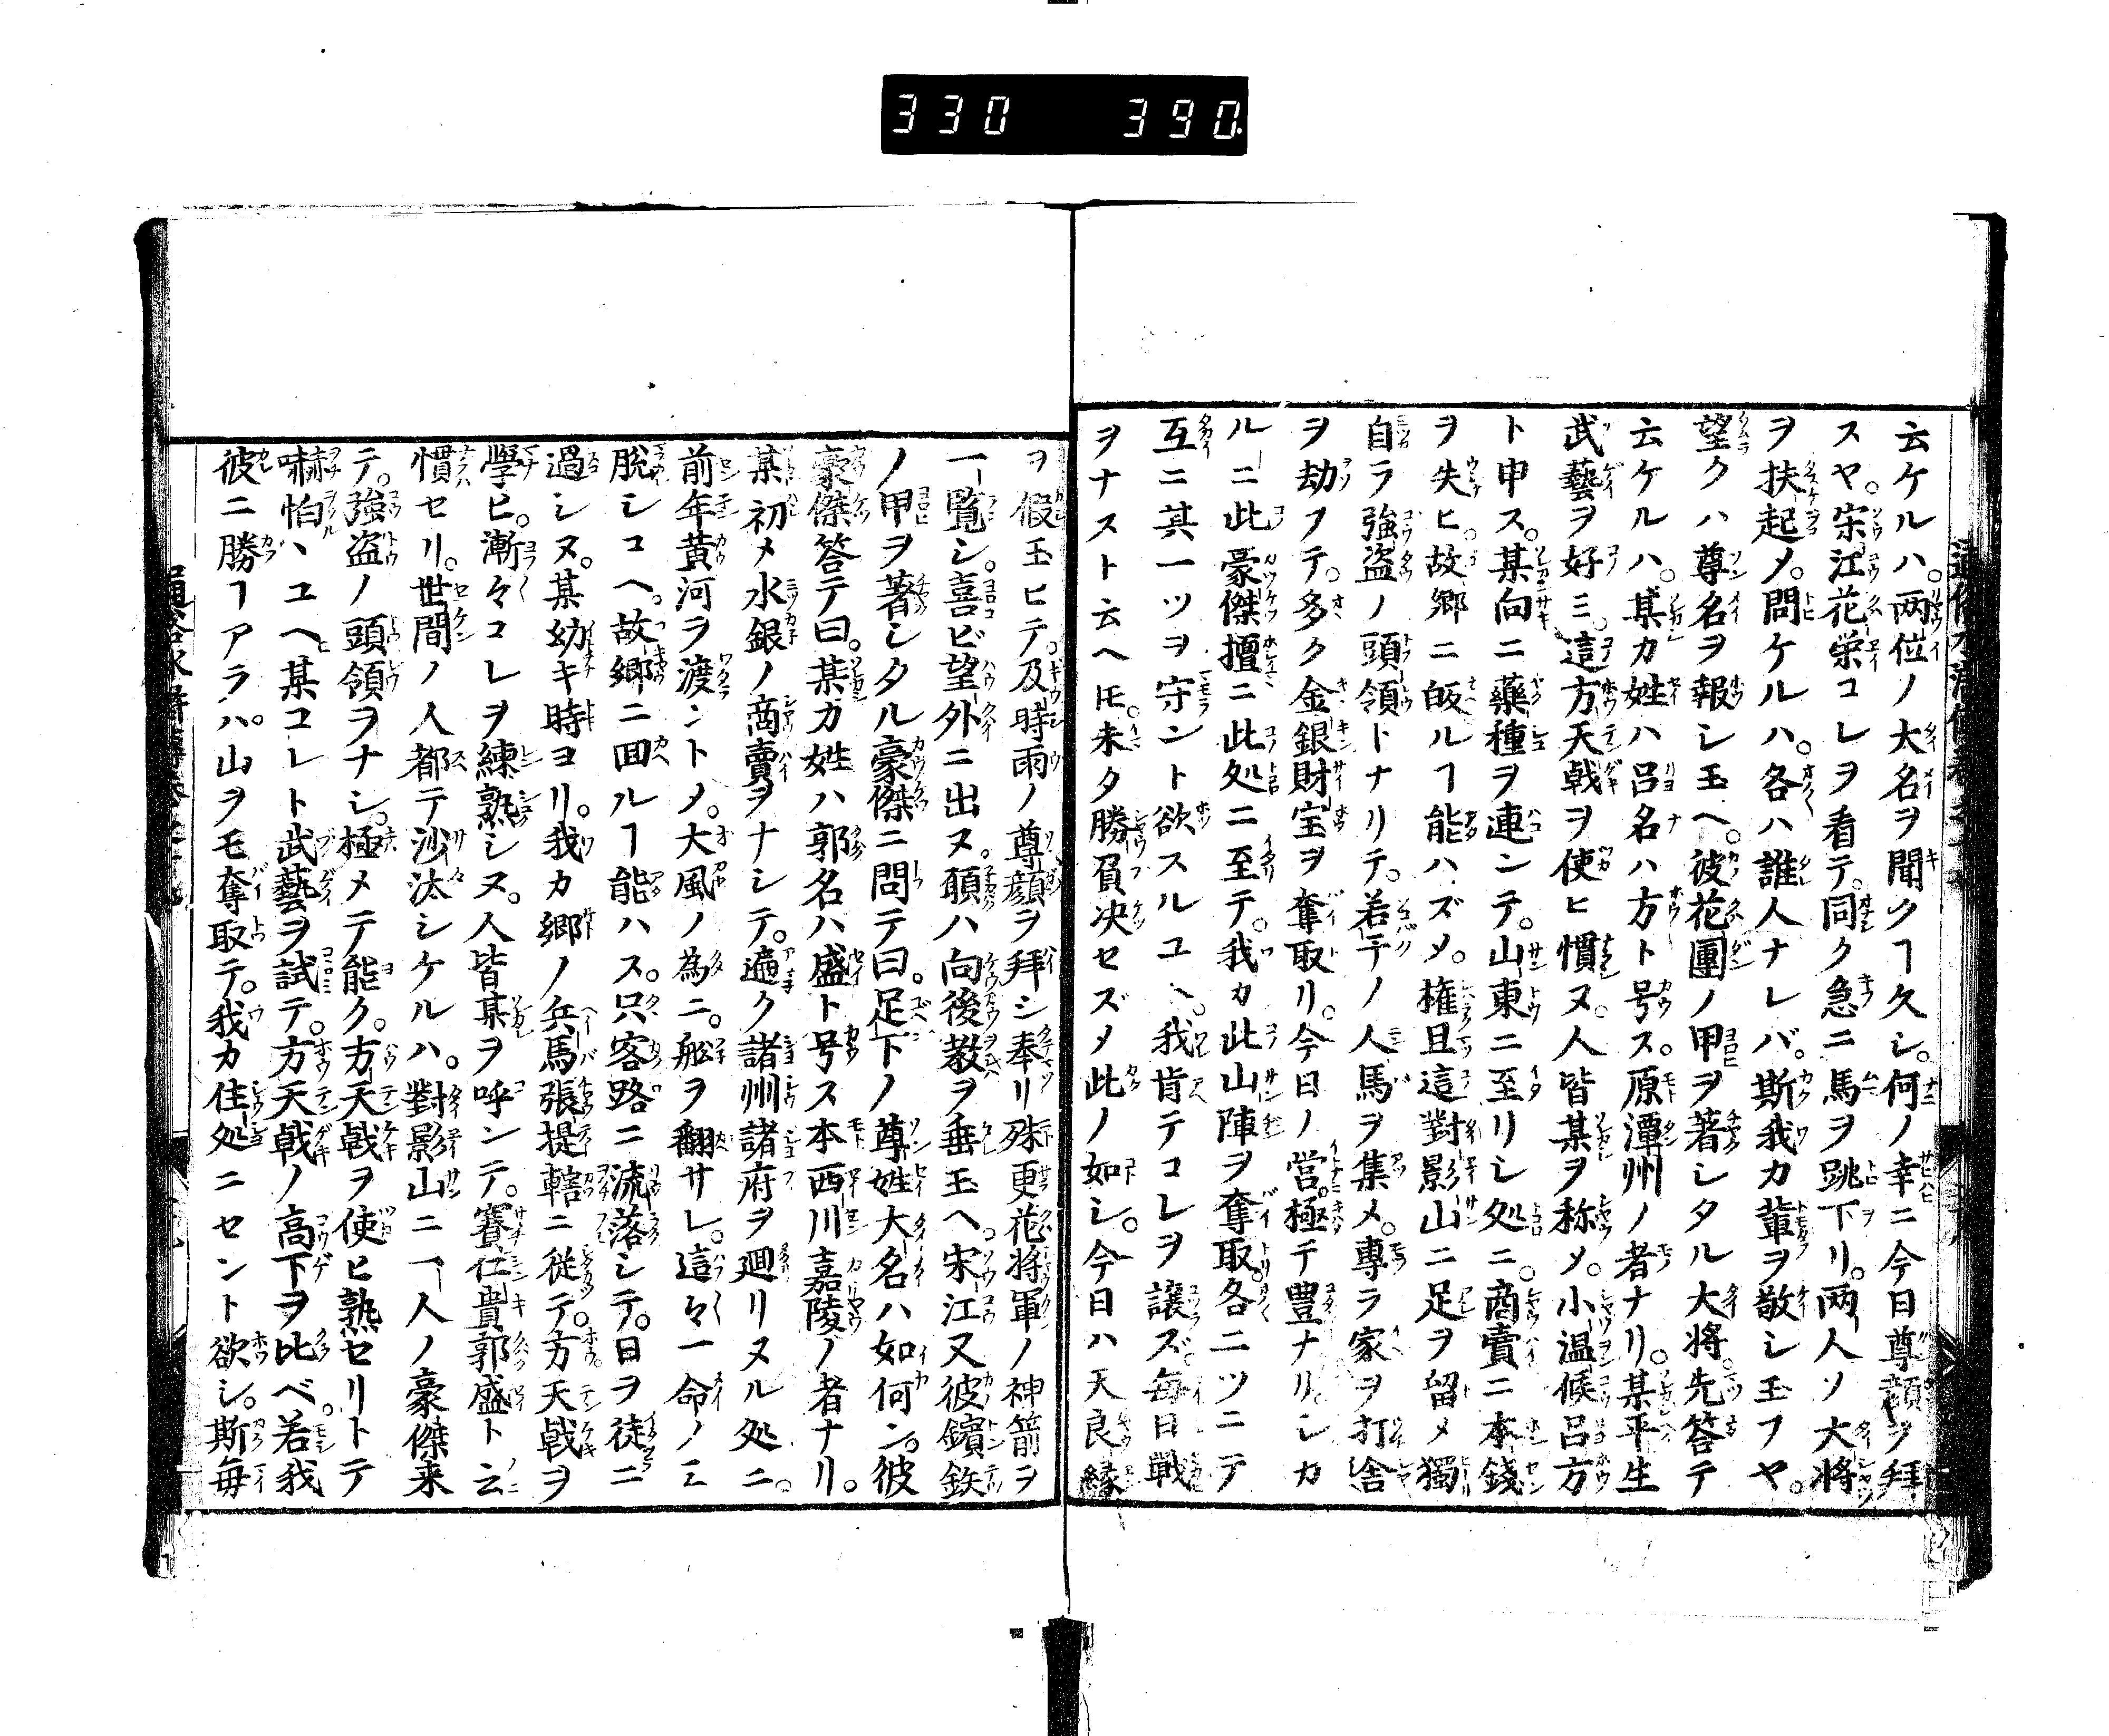 330 390
云ケルハ。两位ノ大名ヲ聞クヿ久シ。何ノ幸ニ今日尊顔ヲ拜
スヤ。宋江花栄コレヲ看テ。同ク急ニ馬ヲ跳下リ。两人ノ大将
ヲ扶起メ。問ケルハ。各ハ誰人ナレバ。斯我カ輩ヲ敬シ玉フヤ。
望クハ尊名ヲ報シ玉ヘ。彼花團ノ甲ヲ著シタル大将。先答テ
云ケルハ。某カ姓ハ呂名ハ方ト号ス。原潭州ノ者ナリ。某平生
武藝ヲ好ミ。這方天戟ヲ使ヒ慣ヌ。人皆某ヲ称メ。小温候呂方
ト申ス。某向ニ藥種ヲ連ンテ。山東ニ至リシ処ニ。商賣ニ本錢
ヲ失ヒ。故郷ニ皈ルヿ能ハズメ。権且這對影山ニ足ヲ留メ獨
自ラ強盗ノ頭領トナリテ。若干ノ人馬ヲ集メ。專ラ家ヲ打舎
ヲ劫フテ。多ク金銀財宝ヲ奪取リ。今日ノ営。極テ豊ナリ。シカ
ルニ此豪傑擅ニ此処ニ至テ。我カ此山陣ヲ奪取。各二ツニテ
互ニ其一ツヲ守ント欲スルユヘ。我肯テコレヲ讓ズ。毎日戦
ヲナスト云ヘ𪜈。未タ勝負决セズメ此ノ如シ。今日ハ天良縁
ヲ假玉ヒテ。及時雨ノ尊顔ヲ拜シ奉リ殊更花将軍ノ神箭ヲ
一覧シ。喜ビ望外ニ出ヌ。願ハ向後教ヲ垂玉ヘ。宋江又彼鑌鉄
ノ甲ヲ著シタル豪傑ニ問テ曰。足下ノ尊姓大名ハ如何ン。彼
豪傑答テ曰。某カ姓ハ郭名ハ盛ト号ス本西川嘉陵ノ者ナリ。
某初メ水銀ノ商賣ヲナシテ。遍ク諸州諸府ヲ廻リヌル処ニ。
前年黄河ヲ渡ントメ。大風ノ為ニ。舩ヲ翻サレ。這々一命ノミ
脱シコヘ。故郷ニ回ルヿ能ハス。只客路ニ流落シテ。日ヲ徒ニ
過シヌ。某幼キ時ヨリ。我カ郷ノ兵馬張提轄ニ従テ。方天戟ヲ
學ヒ。漸々コレヲ練熟シヌ。人皆某ヲ呼ンテ。賽仁貴郭盛ト云
慣セリ。世間ノ人都テ沙汰シケルハ。對影山ニ一人ノ豪傑来
テ。強盗ノ頭領ヲナシ。極メテ能ク。方天戟ヲ使ヒ熟セリトテ
嚇怕ヽユヘ某コレト武藝ヲ試テ。方天戟ノ高下ヲ比ベ。若我
彼ニ勝ヿアラハ。山ヲモ奪取テ。我カ住処ニセント欲シ。斯毎